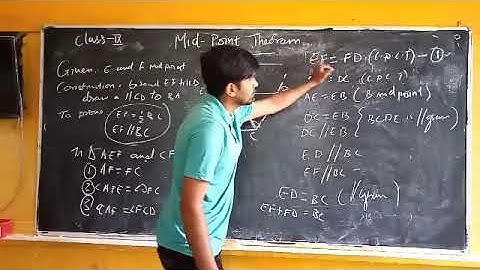 Class-IX
Mid-Point Theorem
Given: E and F midpoint
Construction:- Extend EF to D
draw a ∥CD to BA
To prove:
EF = ½ BC
EF // BC
In Δ AEF and CF
① AF = FC
② <AFE = <DFC
③ = <FCD
EF = FD (C.P.C.T) - ①
= DC (C.P.C.T)
AE = EB (E midpoint)
DC = EB { BCDE is //gram
ED // BC
EF // BC
ED = BC (//gram)
EF+FD = BC